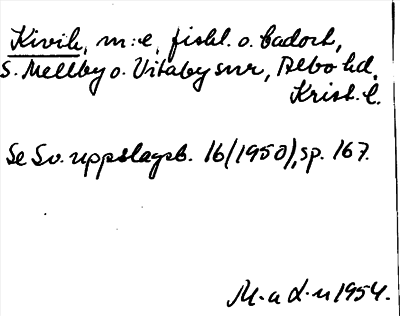 Kivik, m:e, fiskl. o. badort,
S. Mellby o. Vitaby snr, Albo hd,
Krist. l.
Se Sv. uppslagsb. 16 (1950), sp. 167.
M. a d. u 1954.